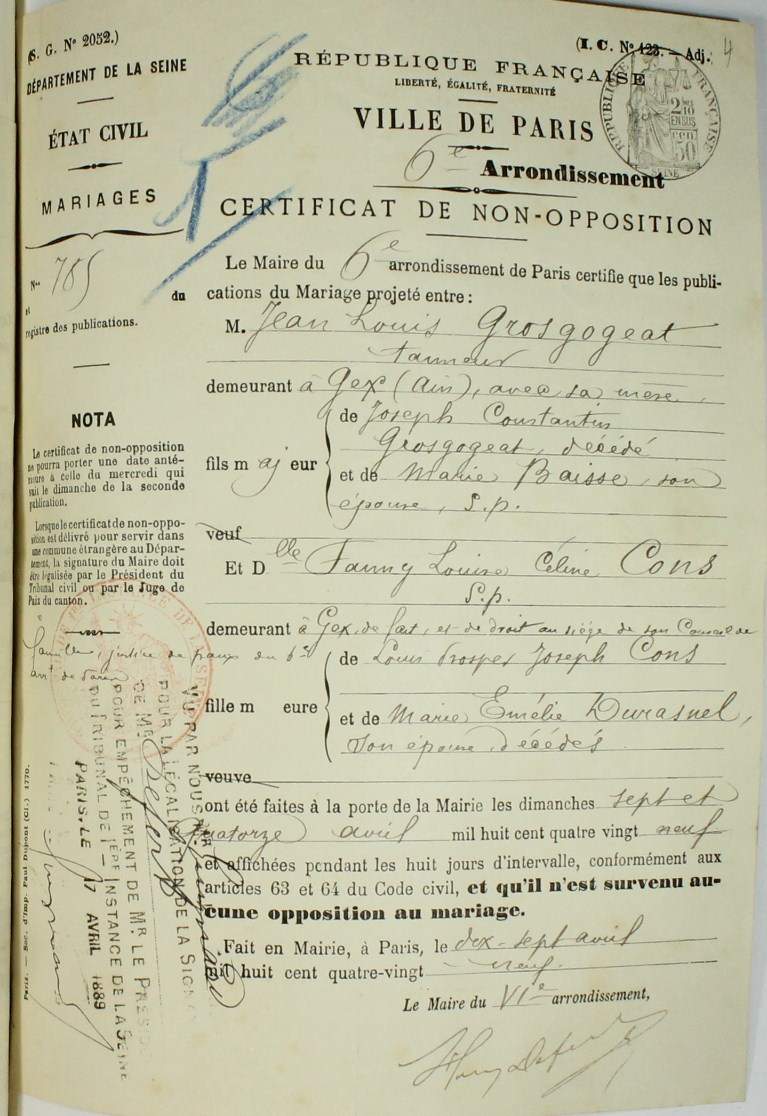 (S. G. Nº 2052.)
DÉPARTEMENT DE LA SEINE
ÉTAT CIVIL
MARIAGES
Nos 785
et
du
registre des publications.
NOTA
Le certificat de non-opposition
ne pourra porter une date anté-
rieure à celle du mercredi qui
suit le dimanche de la seconde
publication.
Lorsque le certificat de non-oppo-
sition est délivré pour servir dans
une commune étrangère au Dépar-
tement, la signature du Maire doit
être légalisée par le Président du
Tribunal civil ou par le Juge de
Paix du canton.
(I. C. Nº 423. — Adj. 4
RÉPUBLIQUE FRANÇAISE
LIBERTÉ, ÉGALITÉ, FRATERNITÉ
VILLE DE PARIS
6e Arrondissement
RÉPUBLIQUE FRANÇAISE
2/10 EN SUS
50 cen
SEINE
CERTIFICAT DE NON-OPPOSITION
Le Maire du 6e arrondissement de Paris certifie que les publi-
cations du Mariage projeté entre :
M. Jean Louis Grosgogeat
tanneur
demeurant à Gex (Ain), avec sa mère,
fils majeur
de Joseph Constantin
Grosgogeat, décédé
et de Marie Baisse, son
épouse, S.p.
veuf
Et Dlle Fanny Louise Céline Cons
S.p.
demeurant à Gex, de fait, et de droit au siège de son Conseil de
famille, justice de paix du 6e
arrt de Paris
fille m eure
de Louis Prosper Joseph Cons
et de Marie Emélie Durasnel,
son épouse, décédés
veuve
ont été faites à la porte de la Mairie les dimanches sept et
quatorze avril mil huit cent quatre vingt neuf
et affichées pendant les huit jours d'intervalle, conformément aux
articles 63 et 64 du Code civil, et qu'il n'est survenu au-
cune opposition au mariage.
Fait en Mairie, à Paris, le dix-sept avril
mil huit cent quatre-vingt neuf.
Le Maire du VIe arrondissement,
VU PAR NOUS MR
POUR LA LÉGALISATION DE LA SIGN
DE MR
POUR EMPÊCHEMENT DE MR. LE PRÉSID
DU TRIBUNAL DE 1ÈRE INSTANCE DE LA SEINE
PARIS, LE 17 AVRIL 1889
Paris. — Soc. d'Imp. Paul Dupont (Cl.) 1770.